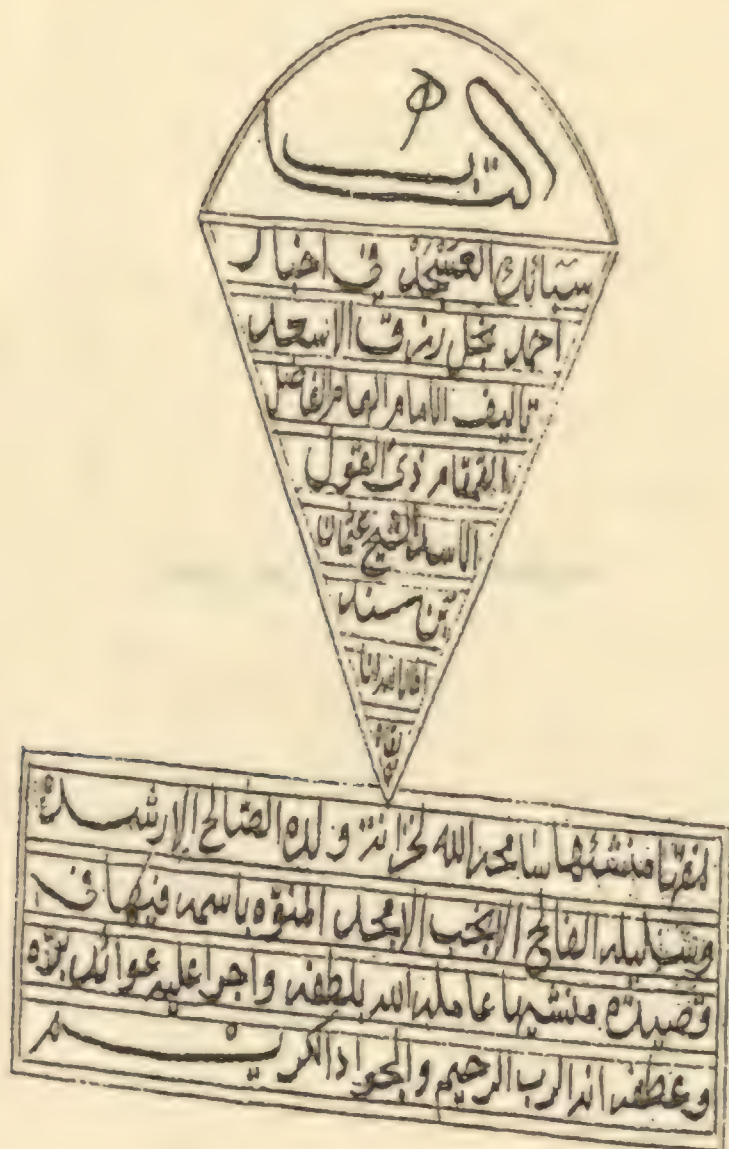 كتاب
سبائك العسجد في اخبار
احمد نجل رزق الاسعد
تاليف الامام الهمام الفاضل
القمقام ذى القول
الاسد الشيخ عثمان
بن سند
منشئها سامحه الله لخزانة ولده الصالح الارشد
وسليله الفالح الانجب الامجد المنوّه باسمه فيها في
قصيدة منشيها عامله الله بلطفه واجرا عليه عوائد برّه
وعطفه انه الرب الرحيم والجواد الكريم